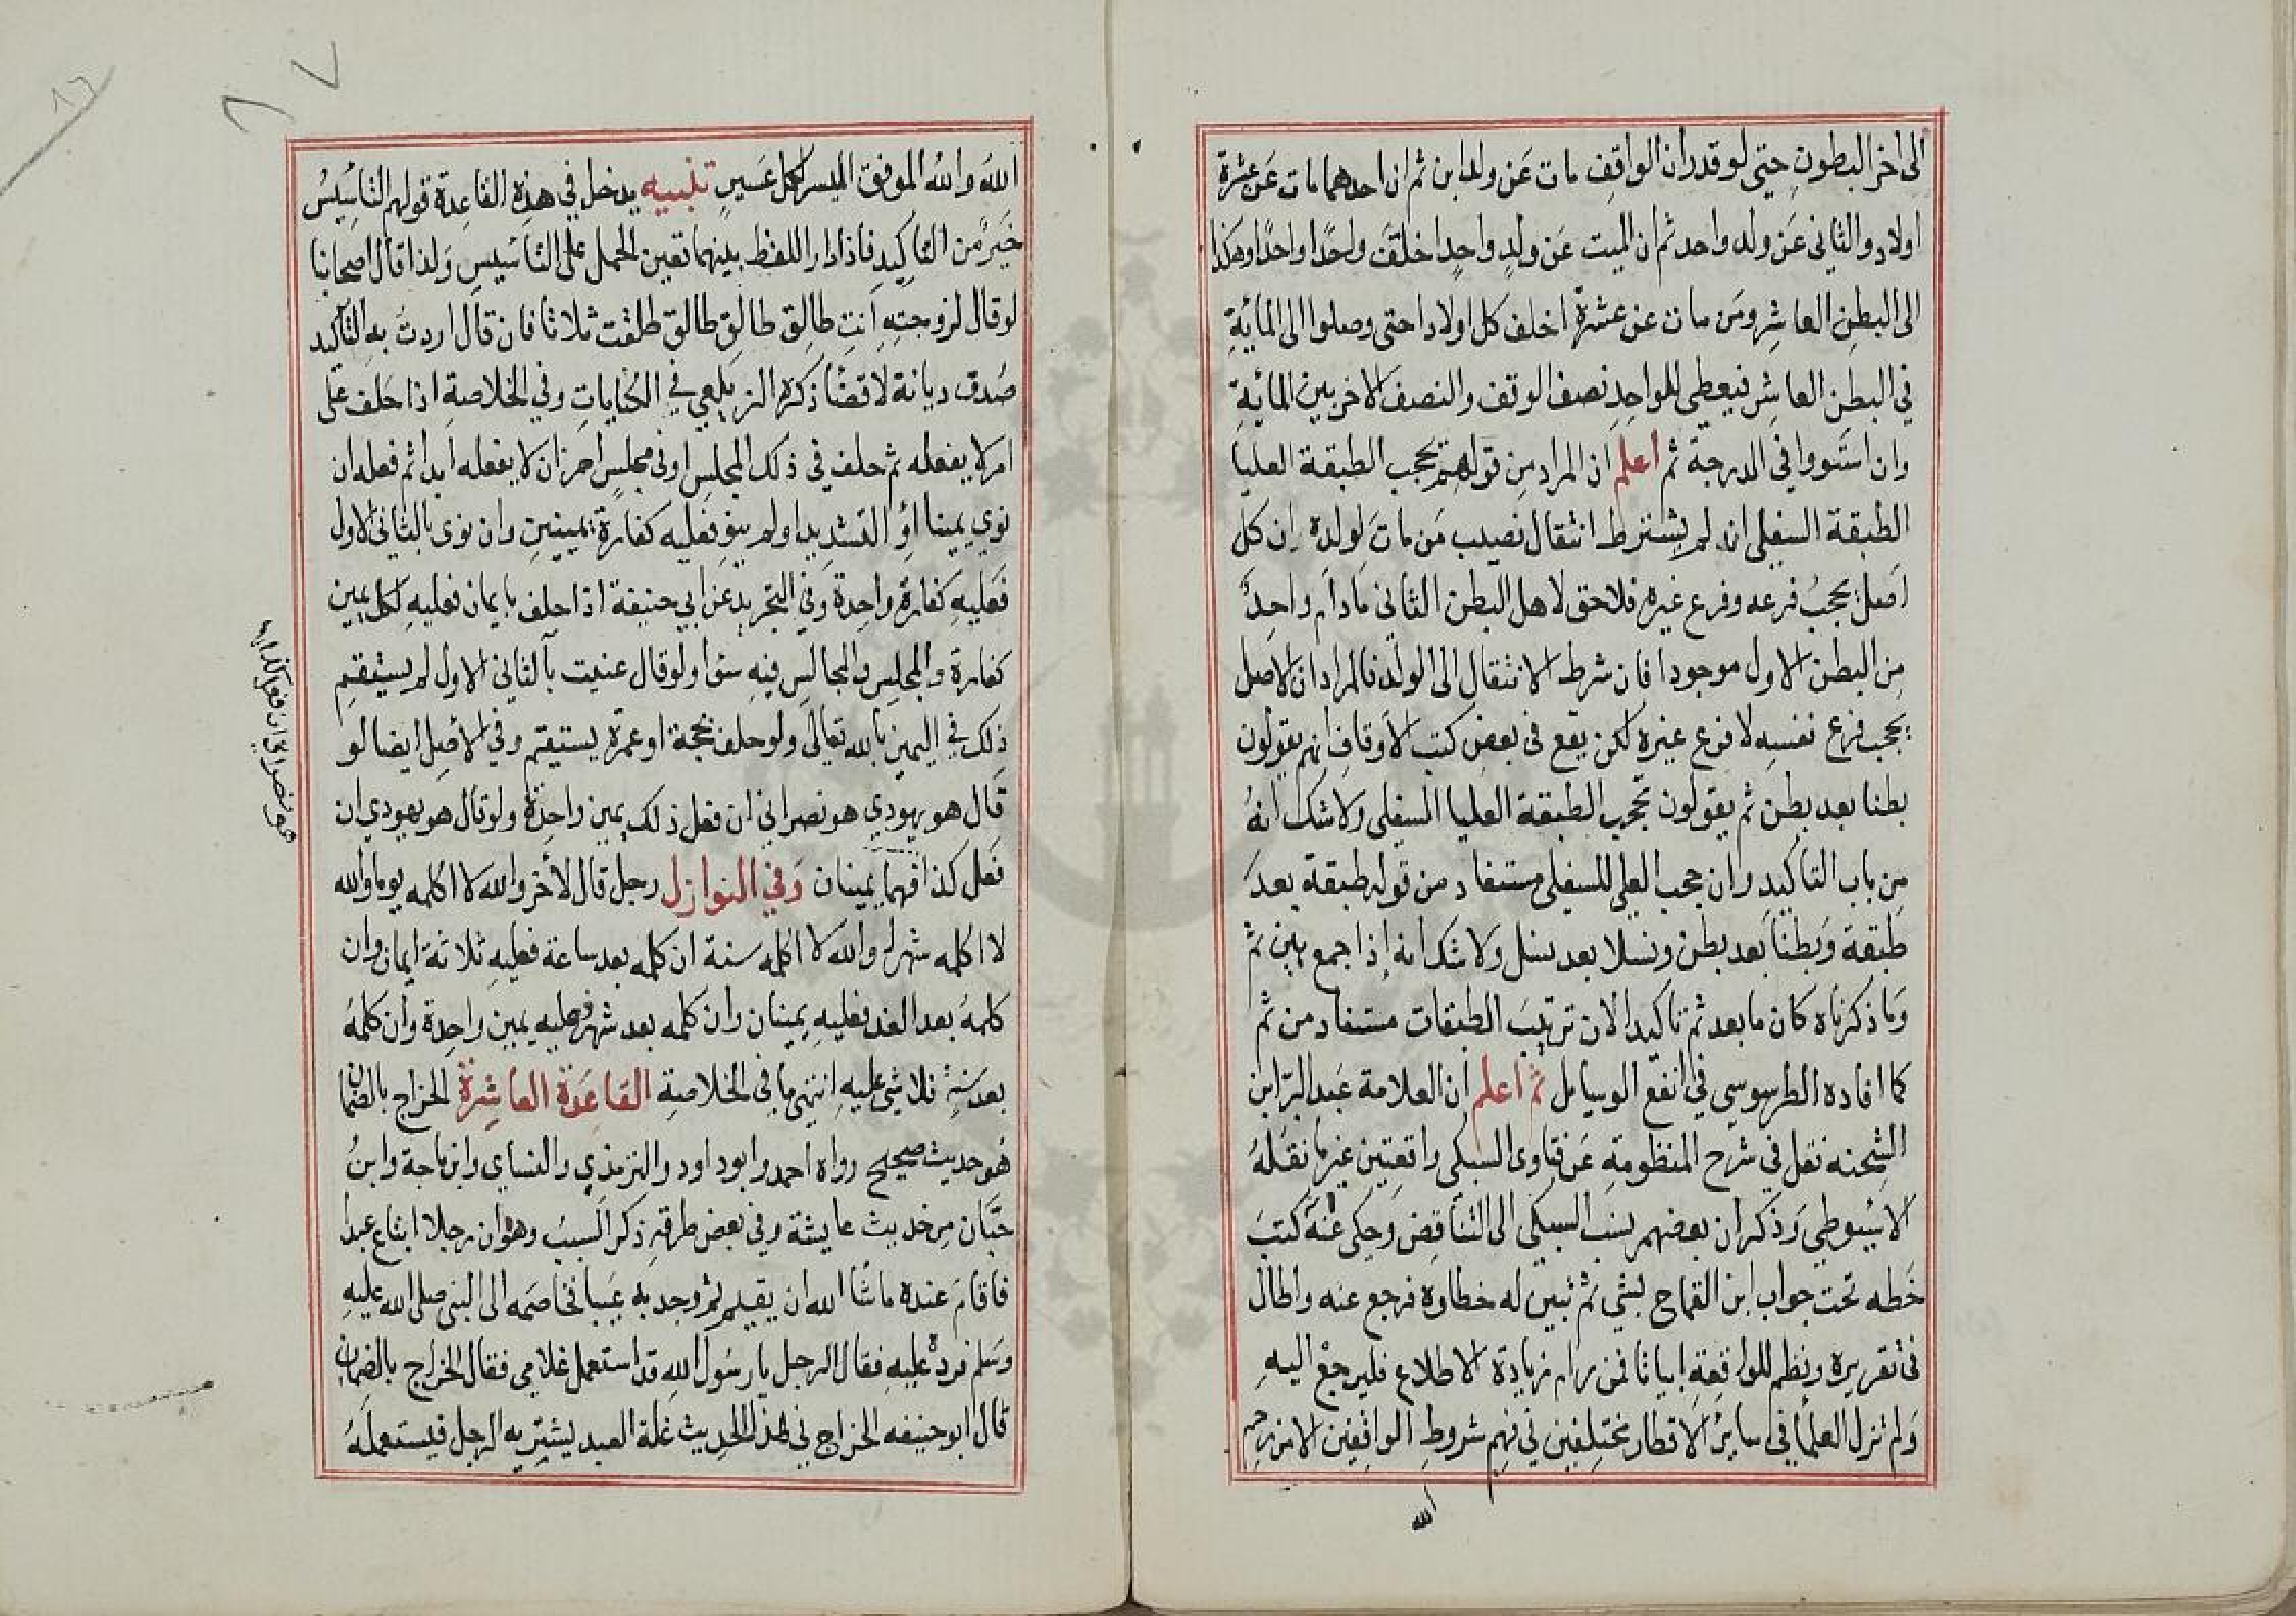 الى اخر البطون حتى لو قدر ان الواقف مات عن ولدين ثم ان احدهما مات عن عشرة
اولاد والثانى عن ولد واحد ثم ان الميت عن ولد واحد خلف واحدا واحدا وهكذا
الى البطن العاشر ومن مات عن عشرة اخلف كل اولادا حتى وصلوا الى المائية
في البطن العاشر فيعطى للواحد نصف الوقف والنصف الاخر بين المائية
وان استووا في الدرجة ثم اعلم ان المراد من قولهم تحجب الطبقة العليا
الطبقة السفلى انه لم يشترط انتقال نصيب من مات لولده ان كل
اصل يحجب فرعه وفرع غيره فلا حق لاهل البطن الثانى ما دام واحد
من البطن الاول موجودا فان شرط الانتقال الى الولد فالمراد ان الاصل
يحجب فرع نفسه لا فرع غيره لكن يقع فى بعض كتب الاوقاف انهم يقولون
بطنا بعد بطن ثم يقولون تحجب الطبقة العليا السفلى ولا شك انه
من باب التاكيد وان حجب العلى للسفلى مستفاد من قوله طبقة بعد
طبقة وبطنا بعد بطن ونسلا بعد نسل ولا شك انه اذا جمع بين ثم
وما ذكرناه كان ما بعد ثم تاكيدا لان ترتيب الطبقات مستفاد من ثم
كما افاده الطرسوسي في انفع الوسايل ثم اعلم ان العلامة عبد البر ابن
الشحنه نقل في شرح المنظومة عن فتاوى السبكى واقعتين غير ما نقله
الاسيوطي وذكر ان بعضهم نسب السبكى الى التناقض وحكى عنه كتب
خطه تحت جواب ابن القماح بشى ثم تبين له خطاوه فرجع عنه واطال
فى تقريره ونظم للواقعة ابياتا فمن رام زيادة الاطلاع فليرجع اليه
ولم تزل العلما في ساير الاقطار مختلفين في فهم شروط الواقفين الا من رحم
الله
الله والله الموفق الميسر لكل عسير تنبيه يدخل في هذه القاعدة قولهم التاسيس
خير من التاكيد فاذا دار اللفظ بينهما تعين الحمل على التاسيس ولذا قال اصحابنا
لو قال لزوجته انت طالق طالق طالق طلقت ثلاثا فان قال اردت به التاكيد
صدق ديانة لا قضا ذكره الزيلعي في الكنايات وفي الخلاصة اذا حلف على
امر لا يفعله ثم حلف في ذلك المجلس او فى مجلس اخر ان لا يفعله ابدا ثم فعله ان
نوي يمينا او التشديد او لم ينو فعليه كفارة يمينين وان نوى بالثانى الاول
فعليه كفارة واحدة وفي التجريد عن ابي حنيفة اذا حلف بايمان فعليه لكل يمين
كفارة والمجلس والمجالس فيه سوا ولو قال عنيت بالثانى الاول لم يستقم
ذلك في اليمين بالله تعالى ولو حلف بحجة او عمرة يستقيم وفي الاصل ايضا لو
قال هو يهودي هو نصراني ان فعل ذلك يمين واحدة ولو قال هو يهودي ان
فعل كذا فهما يمينان وفي النوازل رجل قال لاخر والله لا اكلمه يوما والله
لا اكلمه شهرا والله لا اكلمه سنة ان كلمه بعد ساعة فعليه ثلاثة ايمان وان
كلمه بعد الغد فعليه يمينان وان كلمه بعد شهر فعليه يمين واحدة وان كلمه
بعد سنة فلا شى عليه انتهى ما فى الخلاصة القاعدة العاشرة الخراج بالضمان
هو حديث صحيح رواه احمد وابو داود والترمذي والنساي وابن ماجة وابن
حبان من حديث عايشة وفي بعض طرقه ذكر السبب وهو ان رجلا ابتاع عبدا
فاقام عنده ما شا الله ان يقيم ثم وجد به عيبا فخاصمه الى النبى صلى الله عليه
وسلم فرده عليه فقال الرجل يا رسول الله قد استعمل غلامي فقال الخراج بالضمان
قال ابو حنيفه الخراج في هذا الحديث غلة العبد يشتريه الرجل فيستعمله
هو نصراني ان فعل كذا
٨٧
٨٦